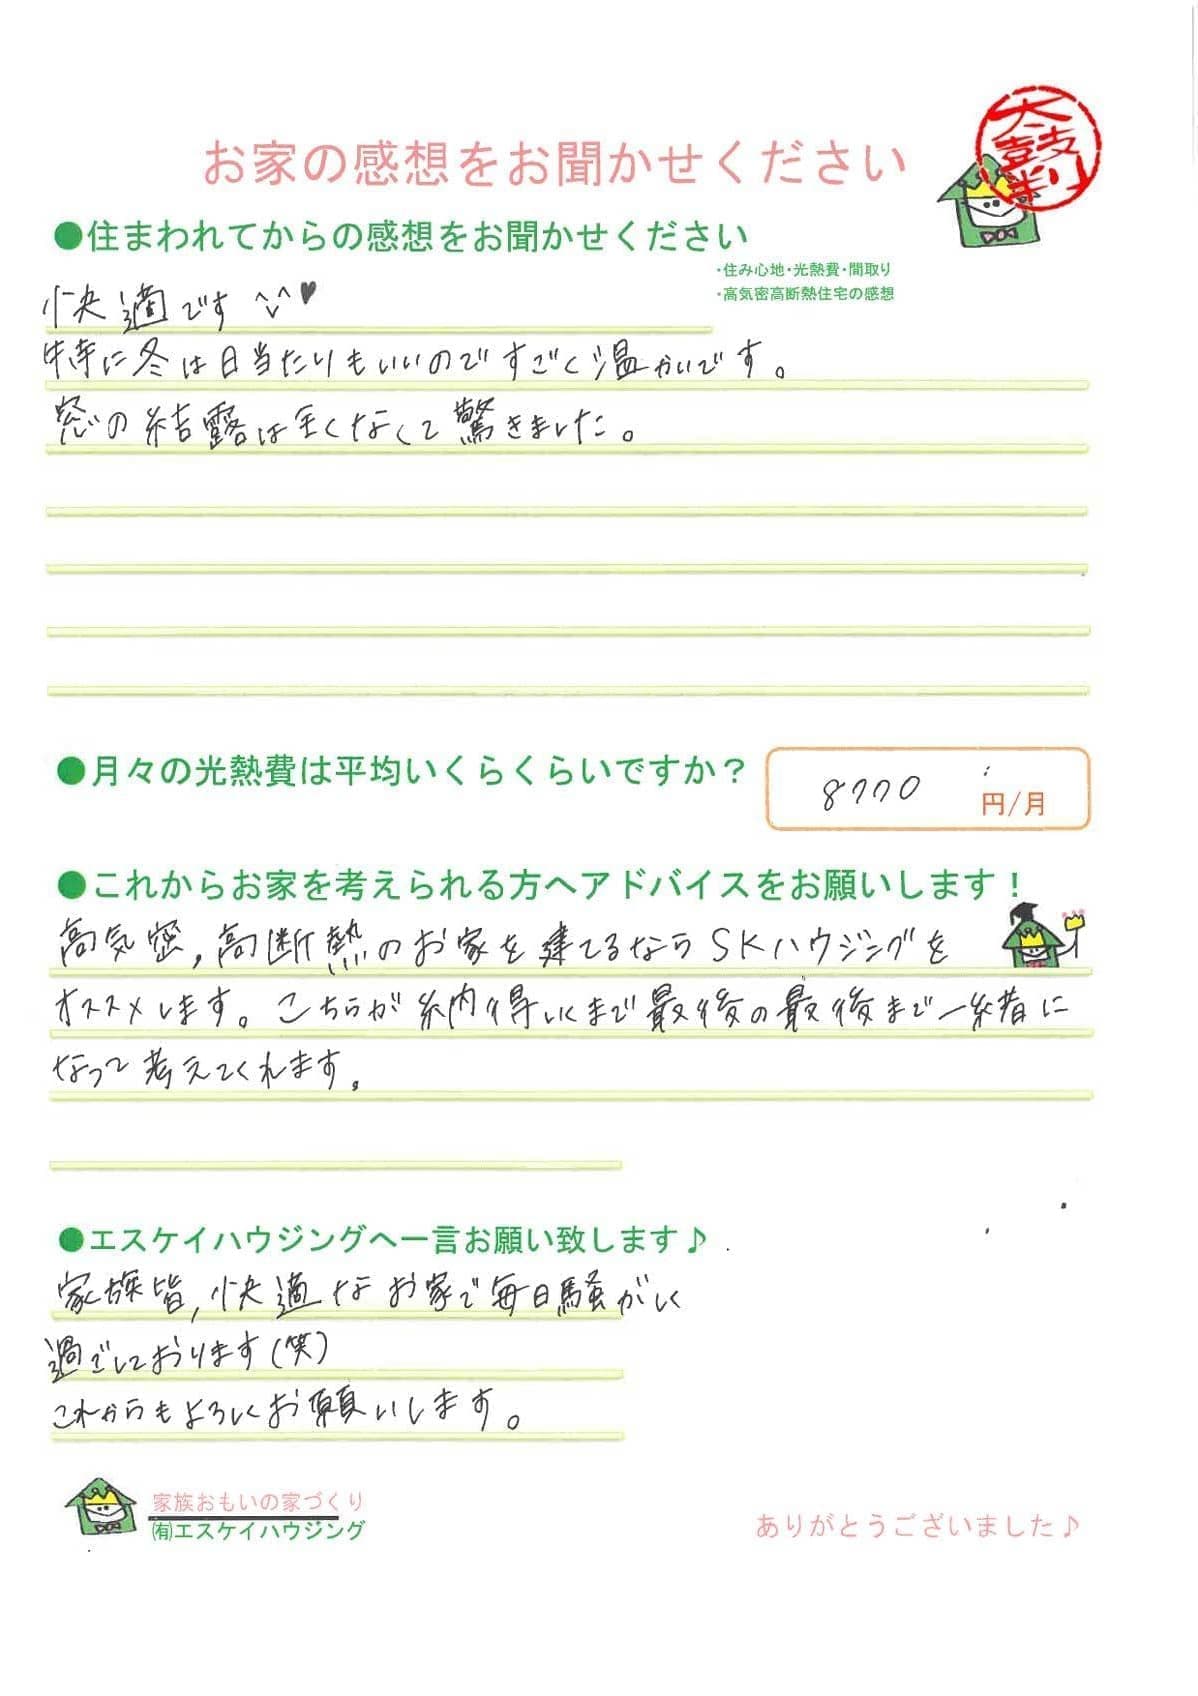 お家の感想をお聞かせください
太鼓判
●住まわれてからの感想をお聞かせください
・住み心地・光熱費・間取り
・高気密高断熱住宅の感想
快適です ^v^♥
特に冬は日当たりもいいのですごく温かいです。
窓の結露は全くなくて驚きました。
●月々の光熱費は平均いくらくらいですか？
8770 円/月
●これからお家を考えられる方へアドバイスをお願いします！
高気密,高断熱のお家を建てるならSKハウジングを
オススメします。こちらが納得いくまで最後の最後まで一緒に
なって考えてくれます。
●エスケイハウジングへ一言お願い致します♪
家族皆,快適なお家で毎日騒がしく
過ごしております(笑)
これからもよろしくお願いします。
家族おもいの家づくり
㈲エスケイハウジング
ありがとうございました♪